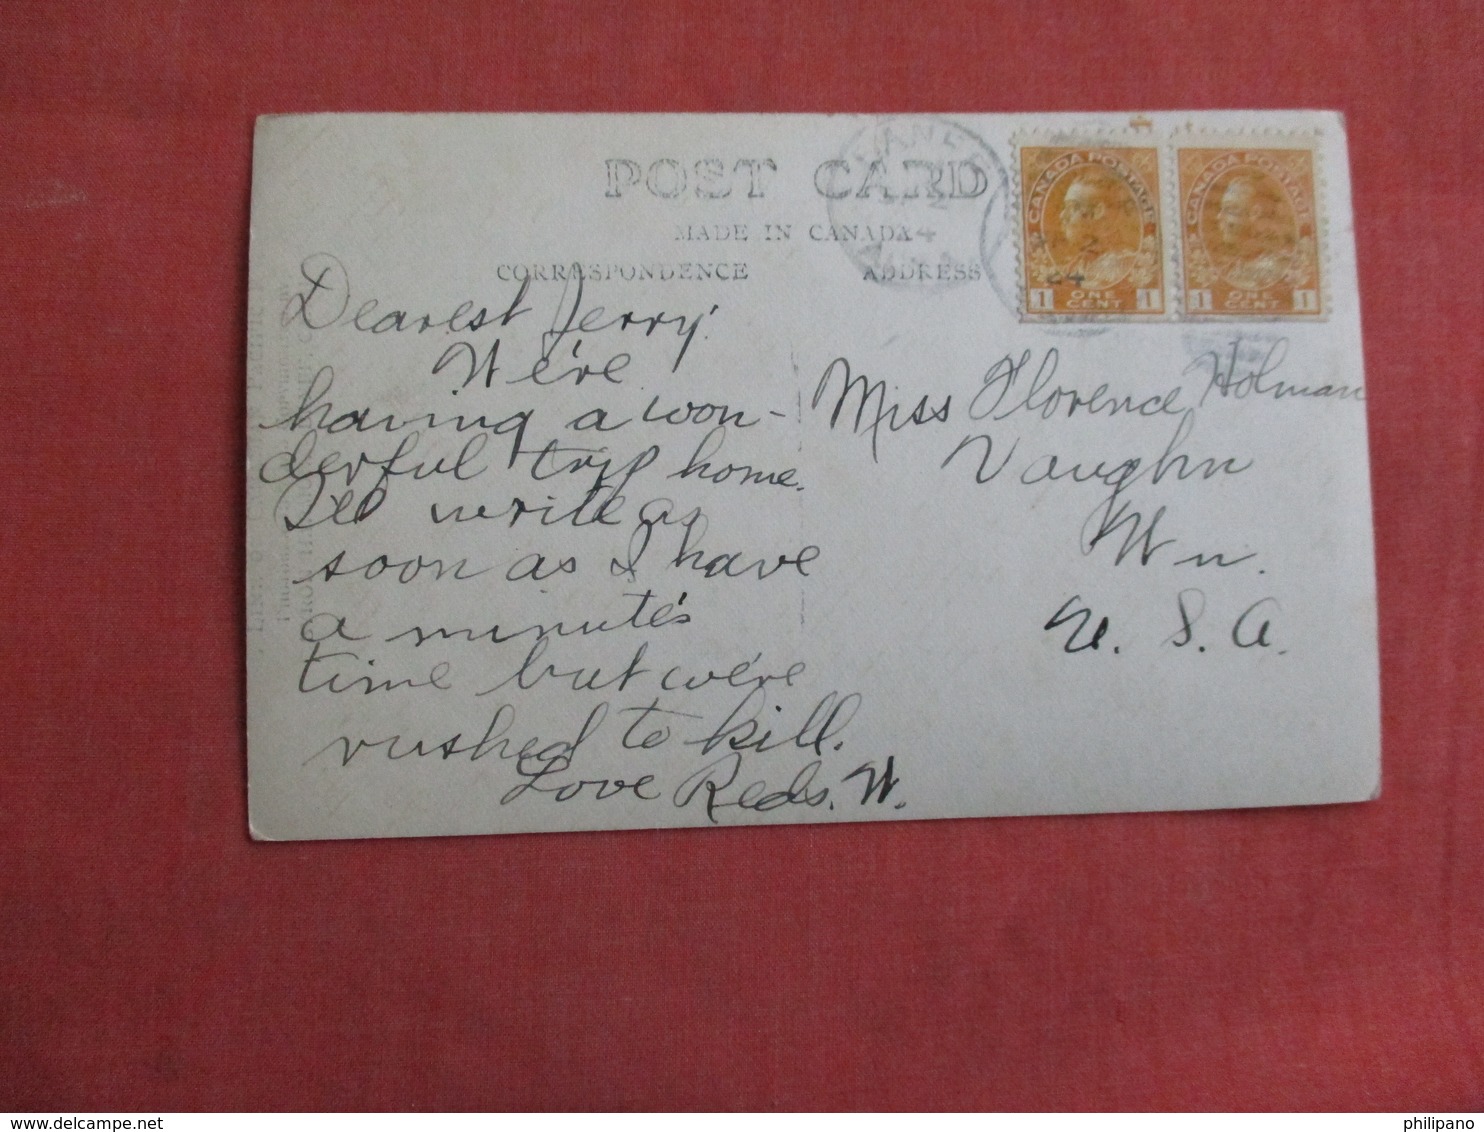 POST CARD
MADE IN CANADA
CORRESPONDENCE
ADDRESS
CANADA POSTAGE
1 ONE CENT 1
CANADA POSTAGE
1 ONE CENT 1
2
24
Dearest Jerry:
We're
having a won-
derful trip home.
I'll write as
soon as I have
a minute's
time but we're
rushed to kill.
Love Reds. W.
Miss Florence Holman
Vaughn
Wn.
U. S. A.
philipano